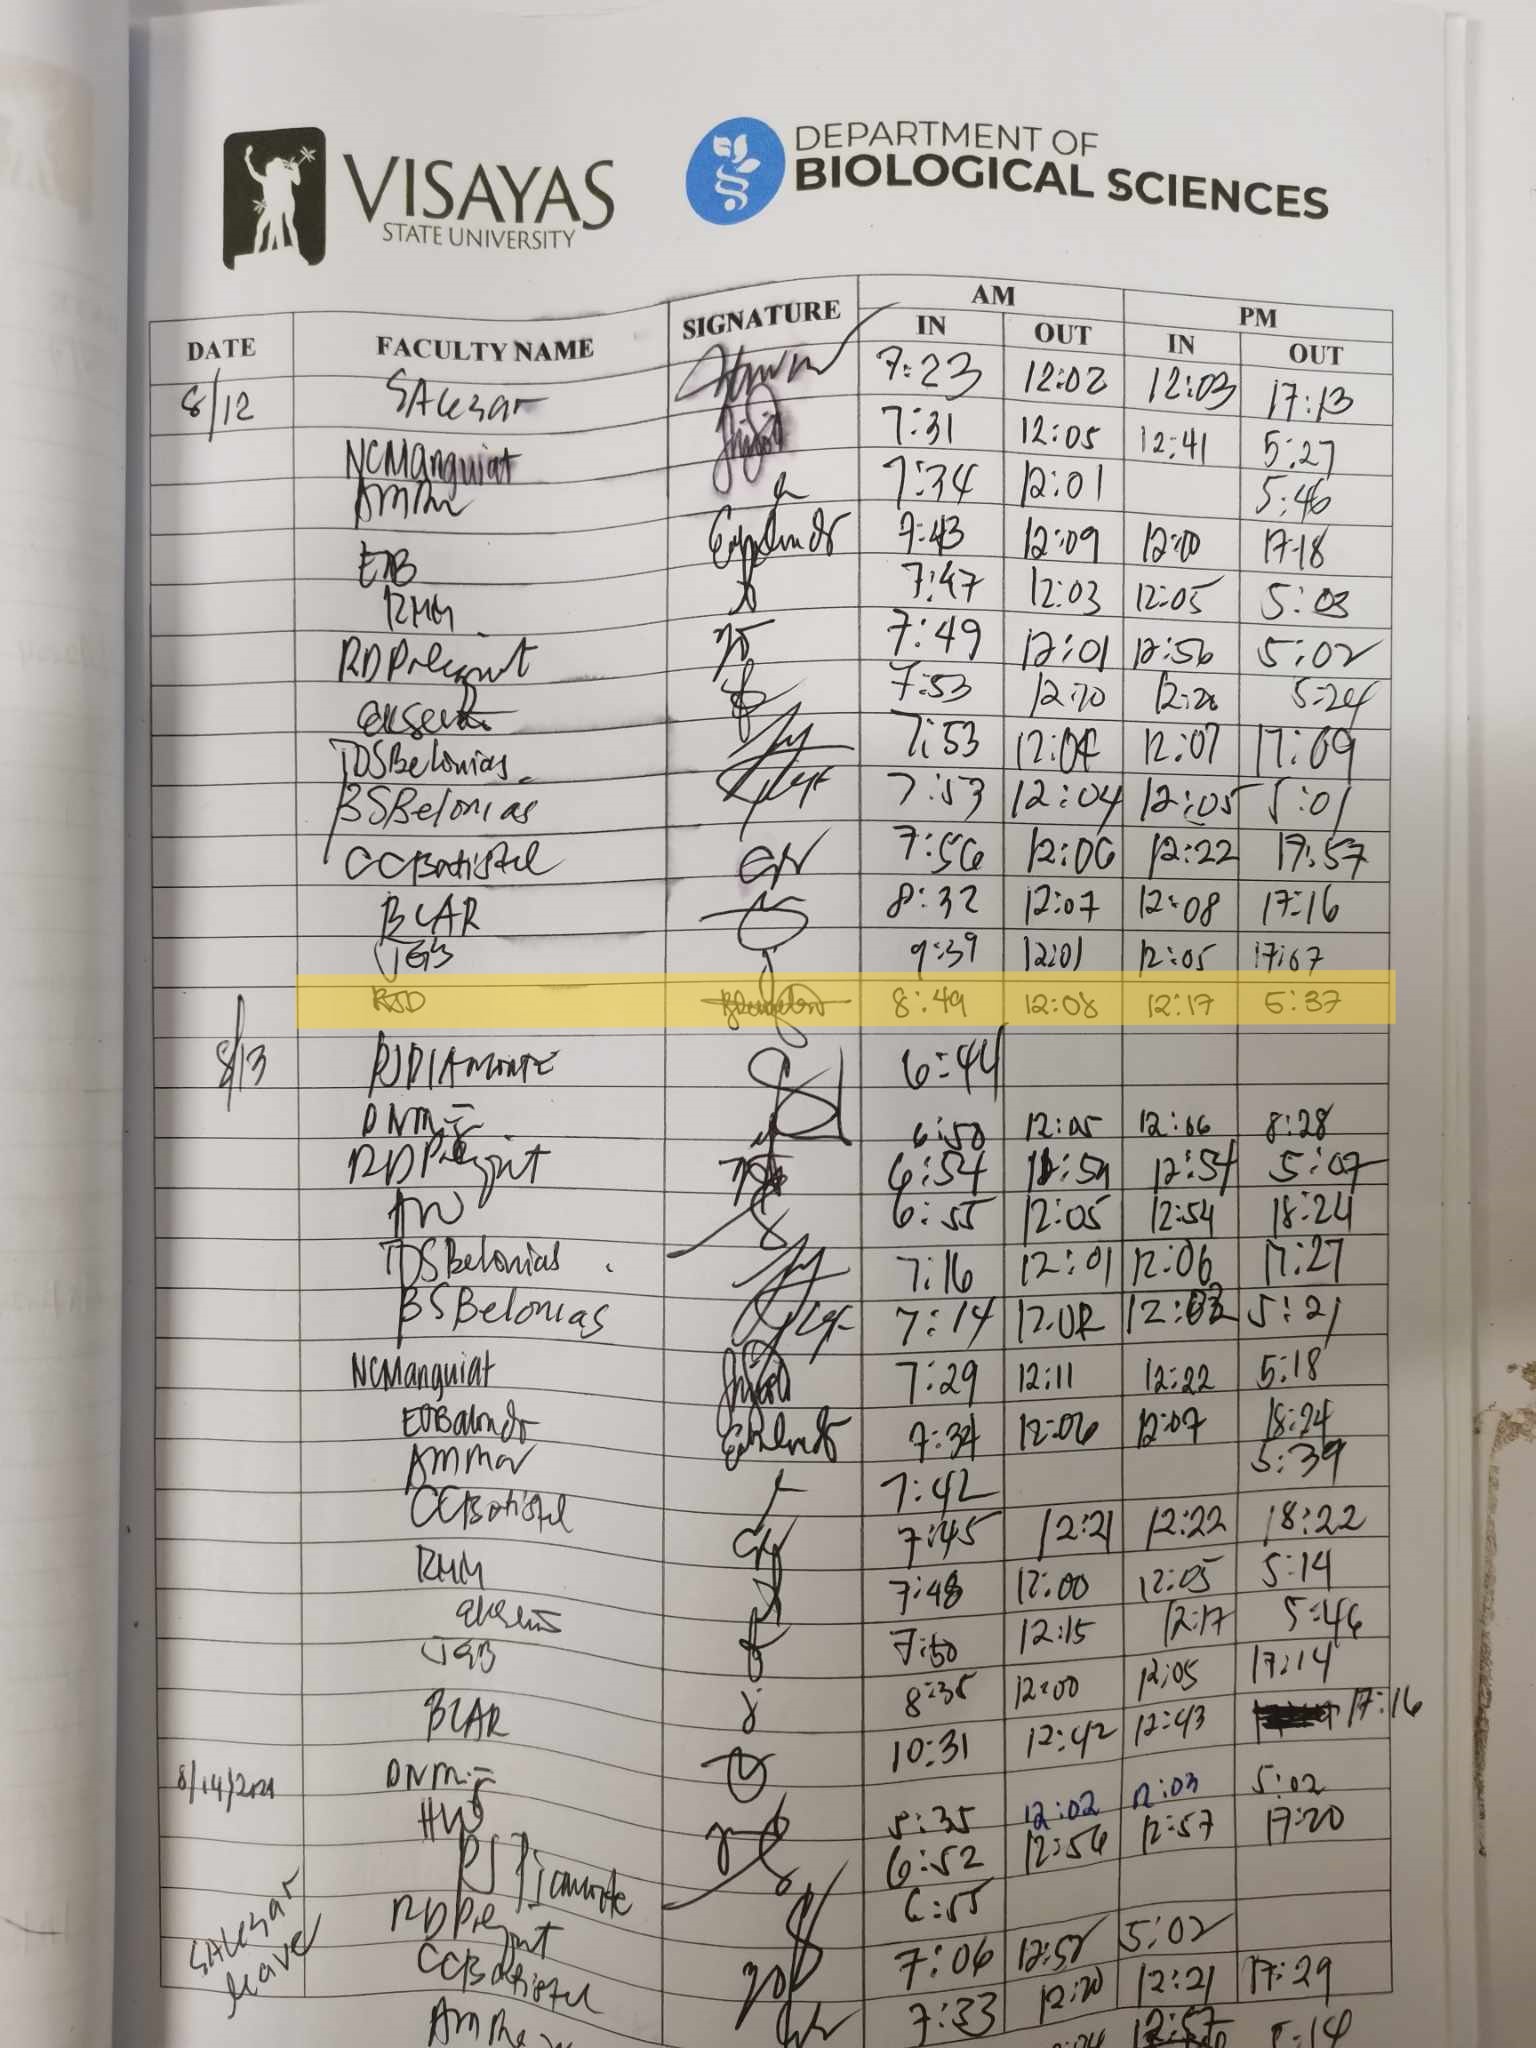 VISAYAS
STATE UNIVERSITY
DEPARTMENT OF
BIOLOGICAL SCIENCES
DATE FACULTY NAME SIGNATURE AM PM
IN OUT IN OUT
8/12 SALesar 7:23 12:02 12:03 17:13
NCManguiat 7:31 12:05 12:41 5:27
7:34 12:01 5:46
EOB 7:43 12:09 12:10 17:18
RMM 7:47 12:03 12:05 5:03
RDP 7:49 12:01 12:56 5:02
7:53 12:20 5:24
TDSBelonias 7:53 12:04 12:07 17:09
BSBelonias 7:53 12:04 12:05 5:01
CCBatistel 7:56 12:06 12:22 17:57
BCAR 8:32 12:07 12:08 17:16
JGB 9:39 12:01 12:05 17:07
RSD 8:49 12:08 12:17 5:37
8/13 RJDIAMONTE 6:44
DNM 6:50 12:05 12:06 8:28
6:54 12:54 5:07
6:55 12:05 12:54 18:24
TDSBelonias 7:16 12:01 12:06 17:27
BSBelonias 7:14 12:02 12:03 5:21
NCManguiat 7:29 12:11 12:22 5:18
EOBalendr 7:34 12:06 12:07 18:24
AMMar 7:42 5:39
CCBatistel 7:45 12:21 12:22 18:22
RMM 7:48 12:00 12:05 5:14
7:50 12:15 12:17 5:46
JGB 8:35 12:00 12:05 17:14
BCAR 10:31 12:42 12:43 17:16
8/14/2024 DNM 5:35 12:02 12:03 5:02
6:52 12:56 12:57 17:20
RJ 6:55
7:06 12:52 5:02
SALesar leave
CCBatistel 7:33 12:20 12:21 17:29
12:57 5:14